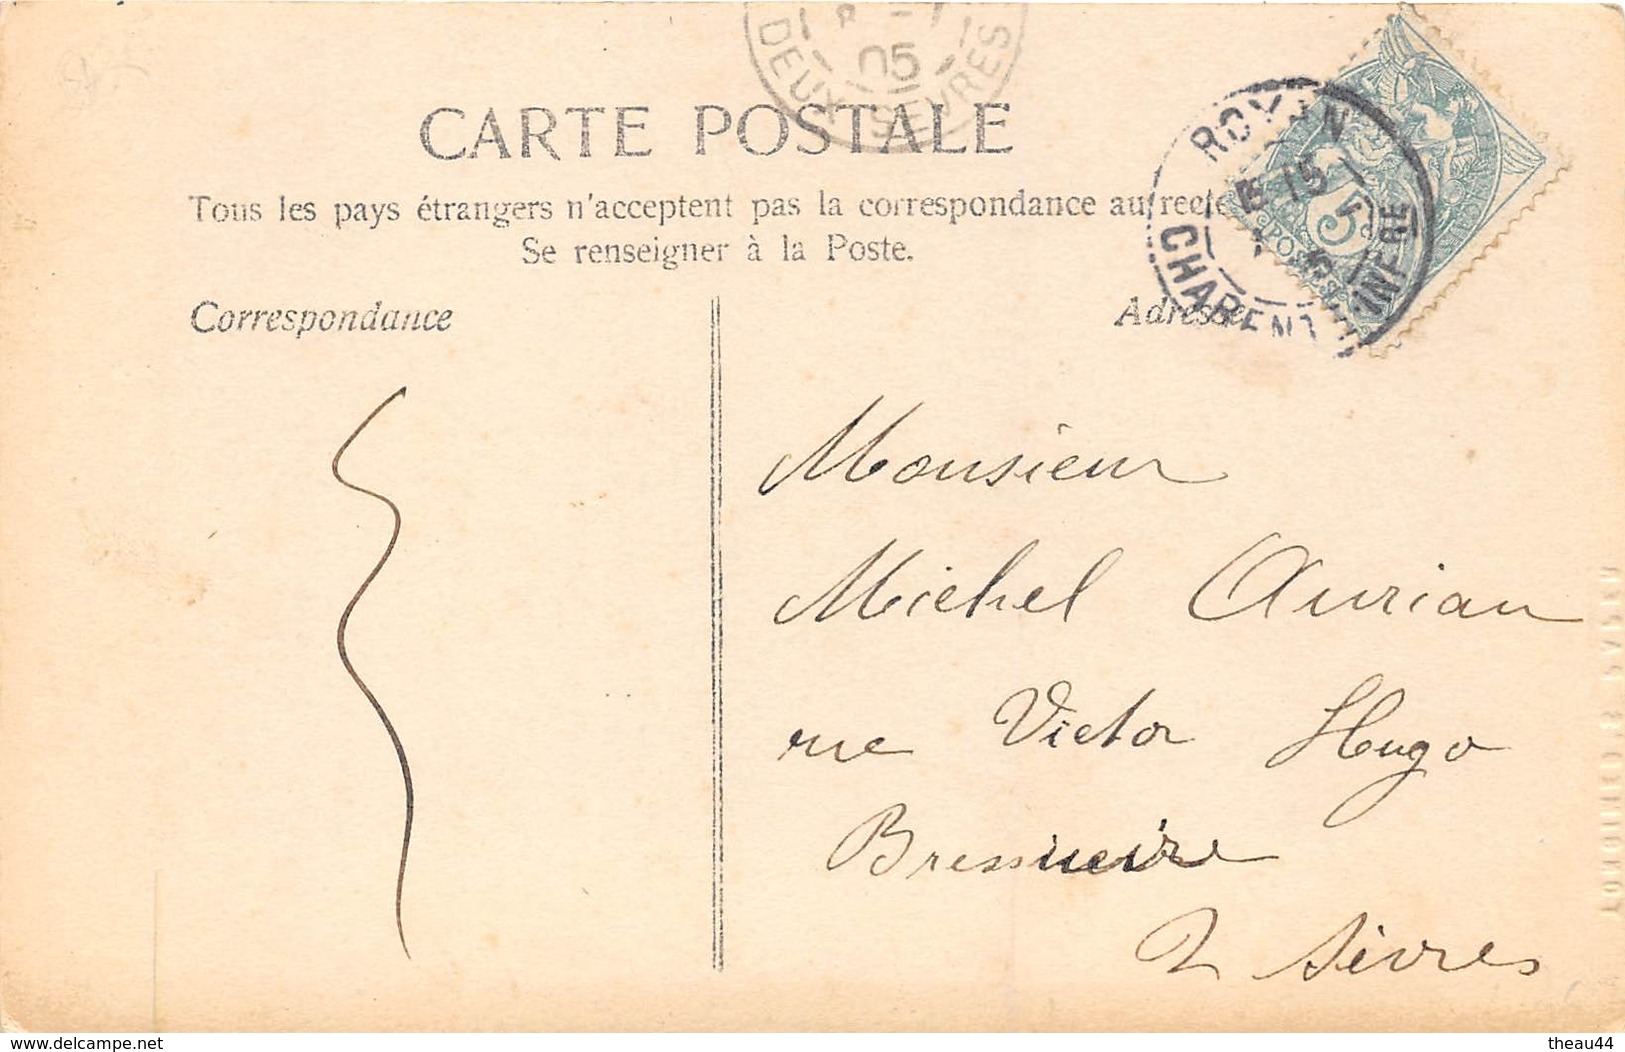 DEUX SEVRES
05
CARTE POSTALE
Tous les pays étrangers n'acceptent pas la correspondance au recto
Se renseigner à la Poste.
ROYAN
15
5
CHARENTE INFRE
Correspondance
Adresse
Monsieur
Michel Aurian
rue Victor Hugo
Bressuire
2 Sèvres
www.delcampe.net
theau44